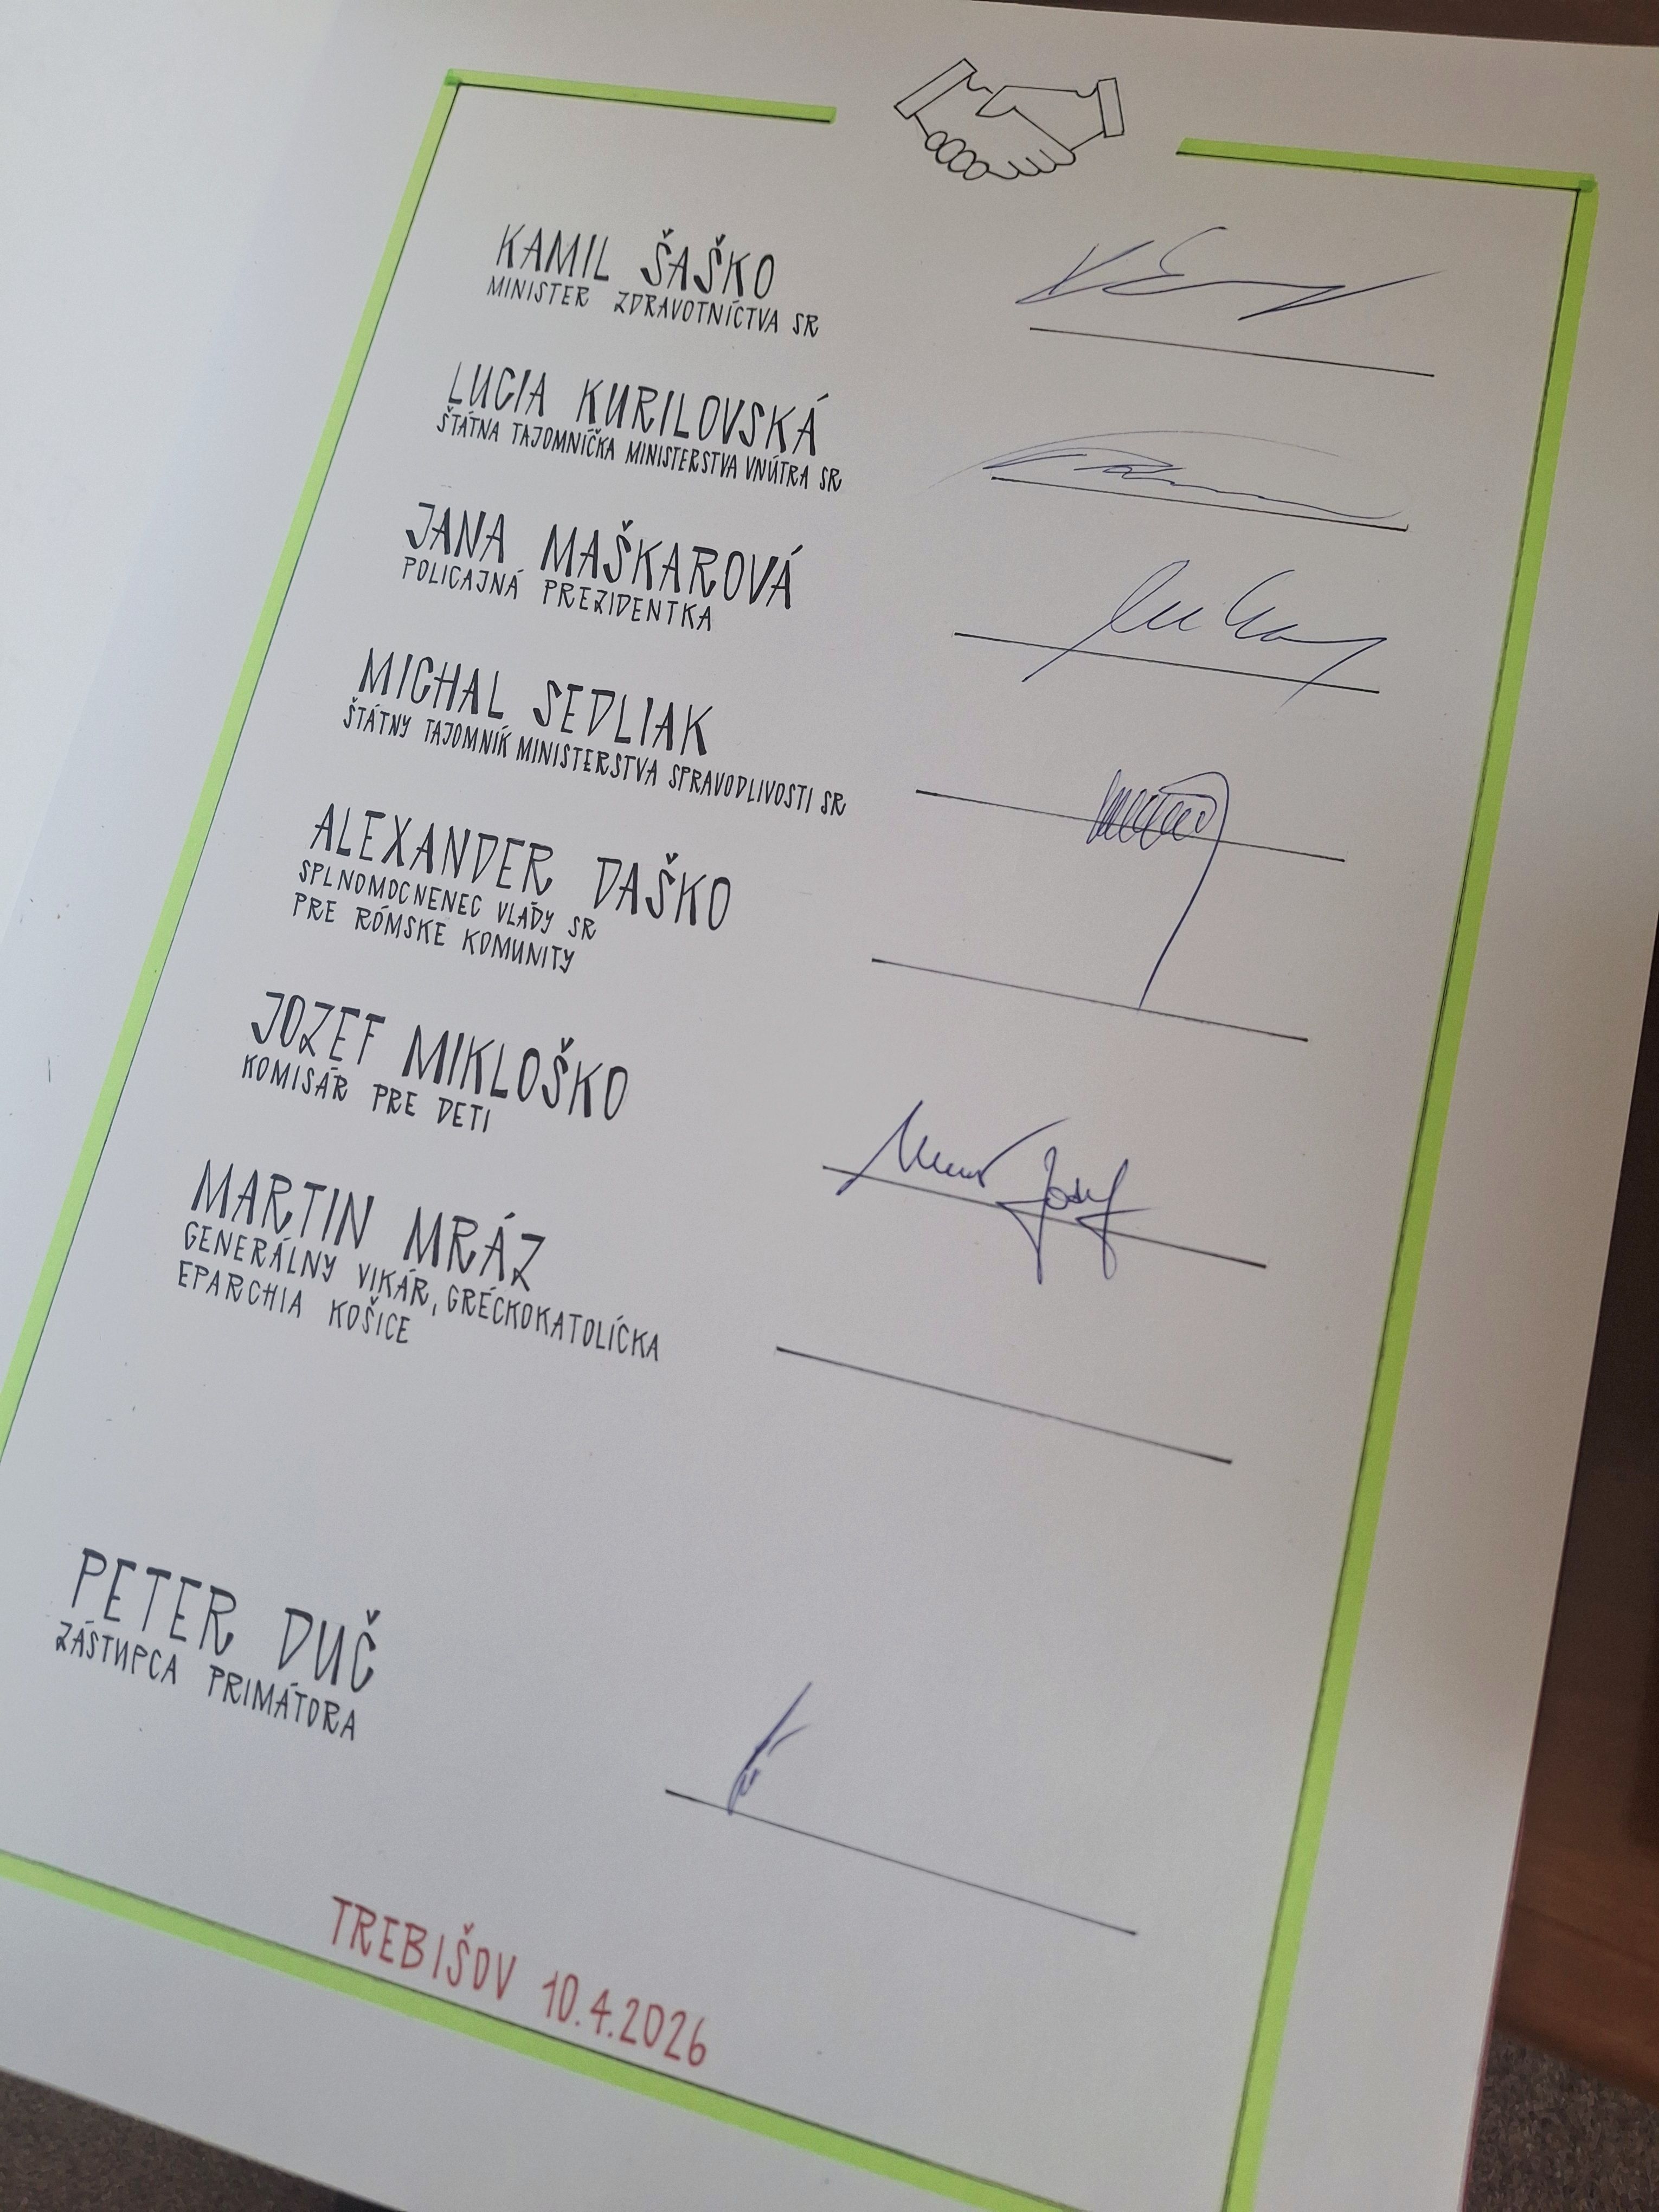 KAMIL ŠAŠKO
MINISTER ZDRAVOTNÍCTVA SR
LUCIA KURILOVSKÁ
ŠTÁTNA TAJOMNÍČKA MINISTERSTVA VNÚTRA SR
JANA MAŠKAROVÁ
POLICAJNÁ PREZIDENTKA
MICHAL SEDLIAK
ŠTÁTNY TAJOMNÍK MINISTERSTVA SPRAVODLIVOSTI SR
ALEXANDER DAŠKO
SPLNOMOCNENEC VLÁDY SR
PRE RÓMSKE KOMUNITY
JOZEF MIKLOŠKO
KOMISÁR PRE DETI
MARTIN MRÁZ
GENERÁLNY VIKÁR, GRÉCKOKATOLÍCKA
EPARCHIA KOŠICE
PETER DUČ
ZÁSTUPCA PRIMÁTORA
TREBIŠOV 10.4.2026